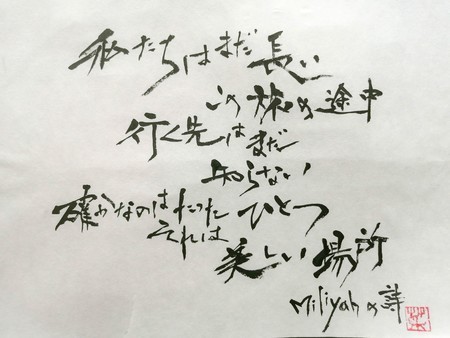 私たちはまだ長い
この旅の途中
行く先はまだ
知らない
確かなのはたった
ひとつ
それは
美しい場所
Miliyahの詩